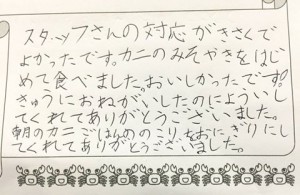 スタッフさんの対応がきさくで
よかったです。カニのみそやきをはじ
めて食べました。おいしかったです!
きゅうにおねがいしたのにようい し
てくれてありがとうございました。
朝のカニごはんののこりをおにぎりにし
てくれてありがとうございました。